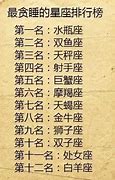 最贪睡的星座排行榜
第一名：水瓶座
第二名：双鱼座
第三名：天秤座
第四名：射手座
第五名：巨蟹座
第六名：摩羯座
第七名：天蝎座
第八名：金牛座
第九名：狮子座
第十名：双子座
第十一名：处女座
第十二名：白羊座